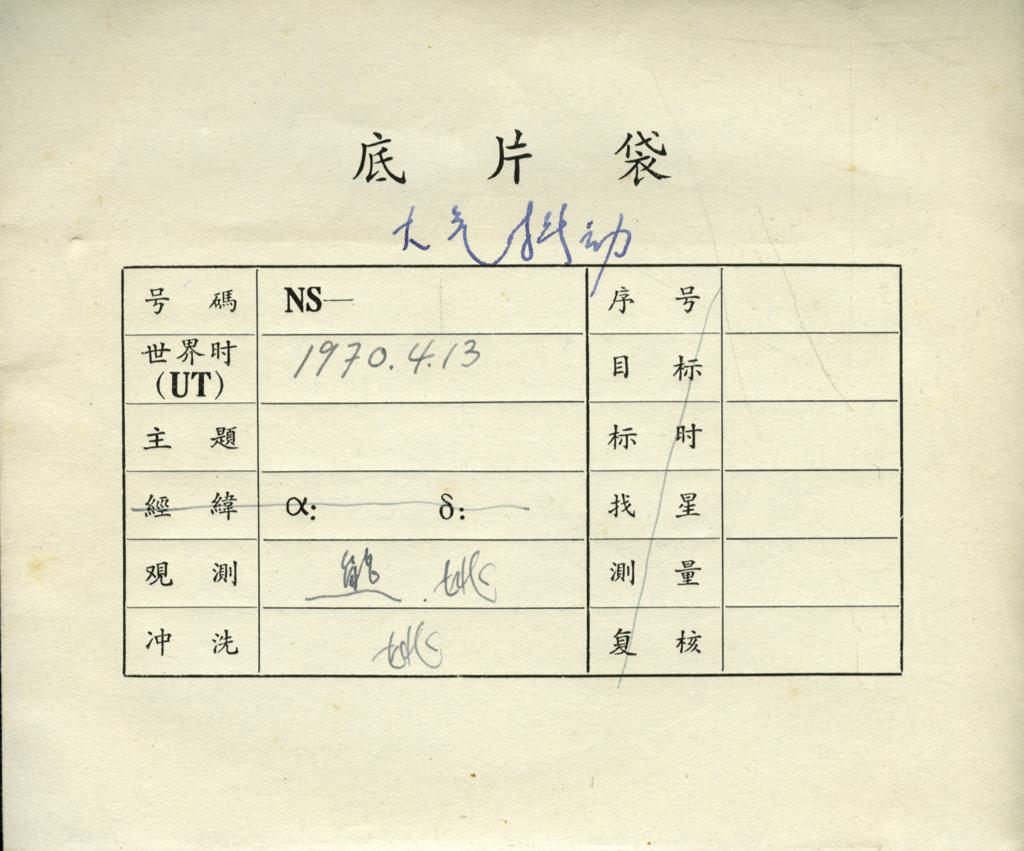 底片袋
大气抖动
号碼 NS— 序号
世界时(UT) 1970.4.13 目标
主題 标时
經緯 α: δ: 找星
观測 熊.姚 測量
冲洗 姚 复核